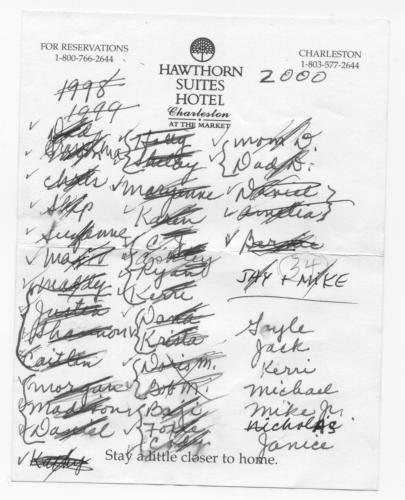 FOR RESERVATIONS
1-800-766-2644
HAWTHORN
SUITES
HOTEL
Charleston
AT THE MARKET
CHARLESTON
1-803-577-2644
1998
1999
2000
Chris
Skip
Suzanne
Maddy
Justin
Shannon
Caitlin
Morgan
Madison
Daniel
Kathy
Holly
Shelby
Maryanne
Karen
C.J.
Ryan
Kerri
Dana
Krista
Doris M.
Bob M.
Cody
Mom D.
Dad D.
David
Amelia
34
JAY + MIKE
Gayle
Jack
Kerri
Michael
Mike Jr.
Nicholas
Janice
Stay a little closer to home.